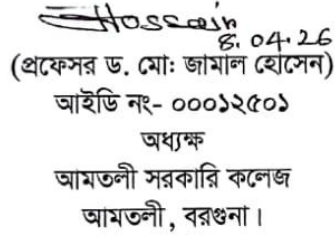 Hossain
8.04.26
(প্রফেসর ড. মো: জামাল হোসেন)
আইডি নং- ০০০১২৫০১
অধ্যক্ষ
আমতলী সরকারি কলেজ
আমতলী, বরগুনা।